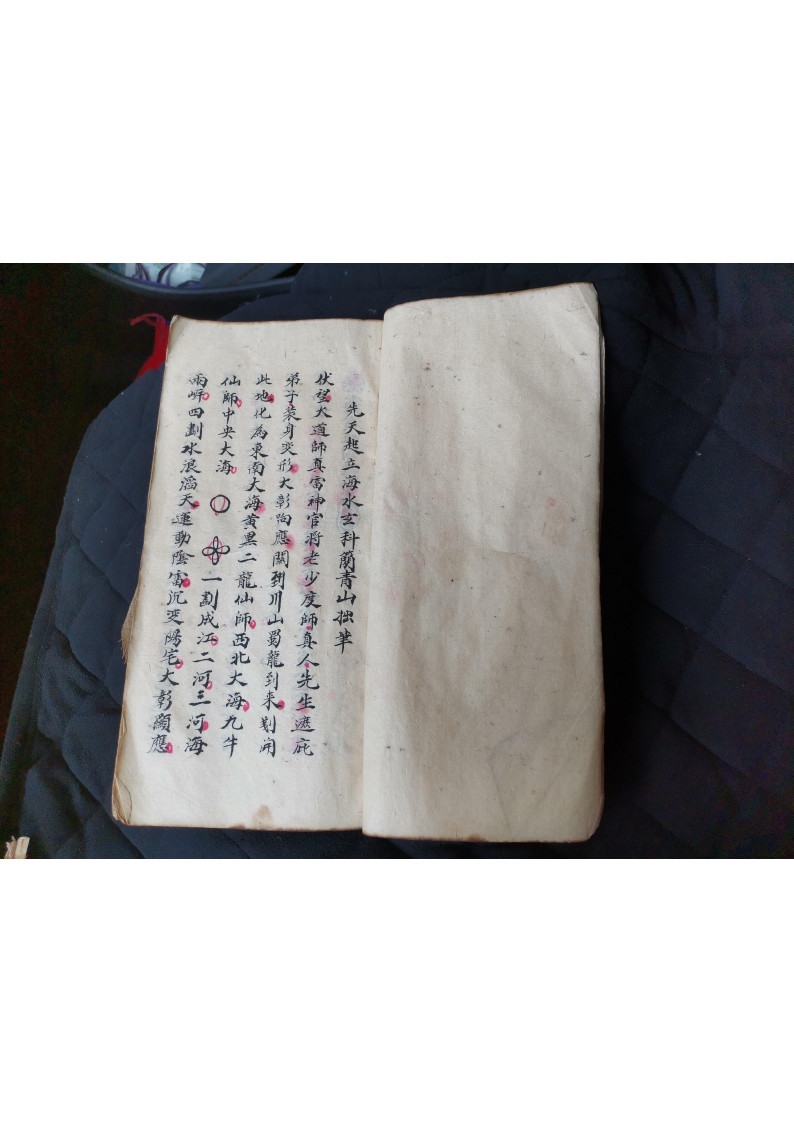 先天起立海水玄科簡青山拙筆
伏望大道師真雷神官将老少度師真人先生遮庇
弟子裝身变形大彰陷應関到川山蜀龍到来剗開
此地化為東南大海黄黒二龍仙師西北大海九牛
仙師中央大海一劃成江二河三河海
兩岍四劃水浪滔天運動陰雷沉变陽宅大彰顯應